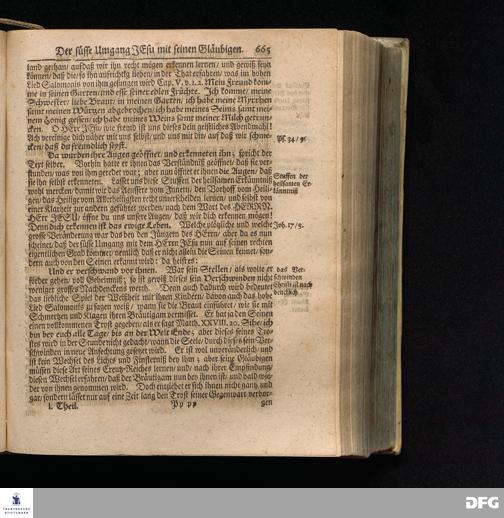 Der süsse Umgang JEsu mit seinen Gläubigen. 665
land gethan/ aufdaß wir ihn recht mögen erkennen lernen/ und gewiß seyn
können/ daß die/ so ihn aufrichtig lieben/ in der That erfahren/ was im hohen
Lied Salomonis von ihm gesungen wird Cap. V. v. 1. 2. Mein Freund kom-
me in seinen Garten/ und esse seiner edlen Früchte. Ich komme/ meine
Schwester/ liebe Braut/ in meinen Garten/ ich habe meine Myrrhen
samt meinen Würtzen abgebrochen/ ich habe meines Seims samt mei-
nem Honig gessen/ ich habe meines Weins samt meiner Milch getrun-
cken. O HErr JEsu/ wie fremd ist uns dieses dein geistliches Abendmahl!
Ach vereinige dich näher mit uns selbst/ und uns mit dir/ auf daß wir schme-
cken/ daß du freundlich seyst.
Ps. 34/ 9.
Da wurden ihre Augen geöffnet/ und erkenneten ihn; spricht der
Text selber. Vorhin hatte er ihnen das Verständniß geöffnet/ daß sie ver-
stunden/ was von ihm geredet war; aber nun öffnet er ihnen die Augen/ daß
sie ihn selbst erkenneten. Lasset uns diese Stuffen der heilsamen Erkänntniß
Stuffen der
heilsamen Er-
känntniß
wohl mercken/ damit wir das Aeussere vom Innern/ den Vorhoff vom Heili-
gen/ das Heilige vom Allerheiligsten recht unterscheiden lernen/ und selbst von
einer Klarheit zur andern geführet werden/ nach dem Wort des HERRN.
HErr JESU/ öffne du uns unsere Augen/ daß wir dich erkennen mögen!
Denn dich erkennen ist das ewige Leben. Welche plötzliche und welche
Joh. 17/ 3.
grosse Veränderung war das bey den Jüngern des HErrn/ aber da es nun
scheinet/ daß der süsse Umgang mit dem HErrn JEsu nun auf seinen rechten
eigentlichen Grad komme/ nemlich/ daß er nicht allein die Seinen kennet/ son-
dern auch von den Seinen erkannt wird: da heist es:
Und er verschwand vor ihnen. War sein Stellen/ als wolte er
das Ver-
schwinden
Christi ist nach
dencklich
fürder gehen/ voll Geheimniß; so ist gewiß dieses sein Verschwinden nicht
weniger grosses Nachdenckens werth. Denn auch dadurch wird bedeutet
das liebliche Spiel der Weißheit mit ihren Kindern/ davon auch das hohe
Lied Salomonis zu sagen weiß/ wann sie die Braut einführet/ wie sie mit
Schmertzen und Klagen ihren Bräutigam vermisset. Er hat ja den Seinen
einen vollkommenen Trost gegeben/ als er sagt Matth. XXVIII. 20. Sihe/ ich
bin bey euch alle Tage/ bis an der Welt Ende; aber dieses seines Tro-
stes wird in der Stunde nicht gedacht/ wann die Seele/ durch dieses sein Ver-
schwinden in neue Anfechtung gesetzet wird. Er ist wol unveränderlich/ und
ist kein Wechsel des Lichts und Finsterniß bey ihm; aber seine Gläubigen
müssen diese Art seines Creutz-Reiches lernen/ und/ nach ihrer Empfindung/
diesen Wechsel erfahren/ daß der Bräutigam nun bey ihnen ist/ und bald wie-
der von ihnen genommen wird. Doch entziehet er sich ihnen nicht gantz und
gar/ sondern lässet nur auf eine Zeit lang den Trost seiner Gegenwart verbor-
I. Theil. Pp pp gen
FRANCKESCHE
STIFTUNGEN
DFG